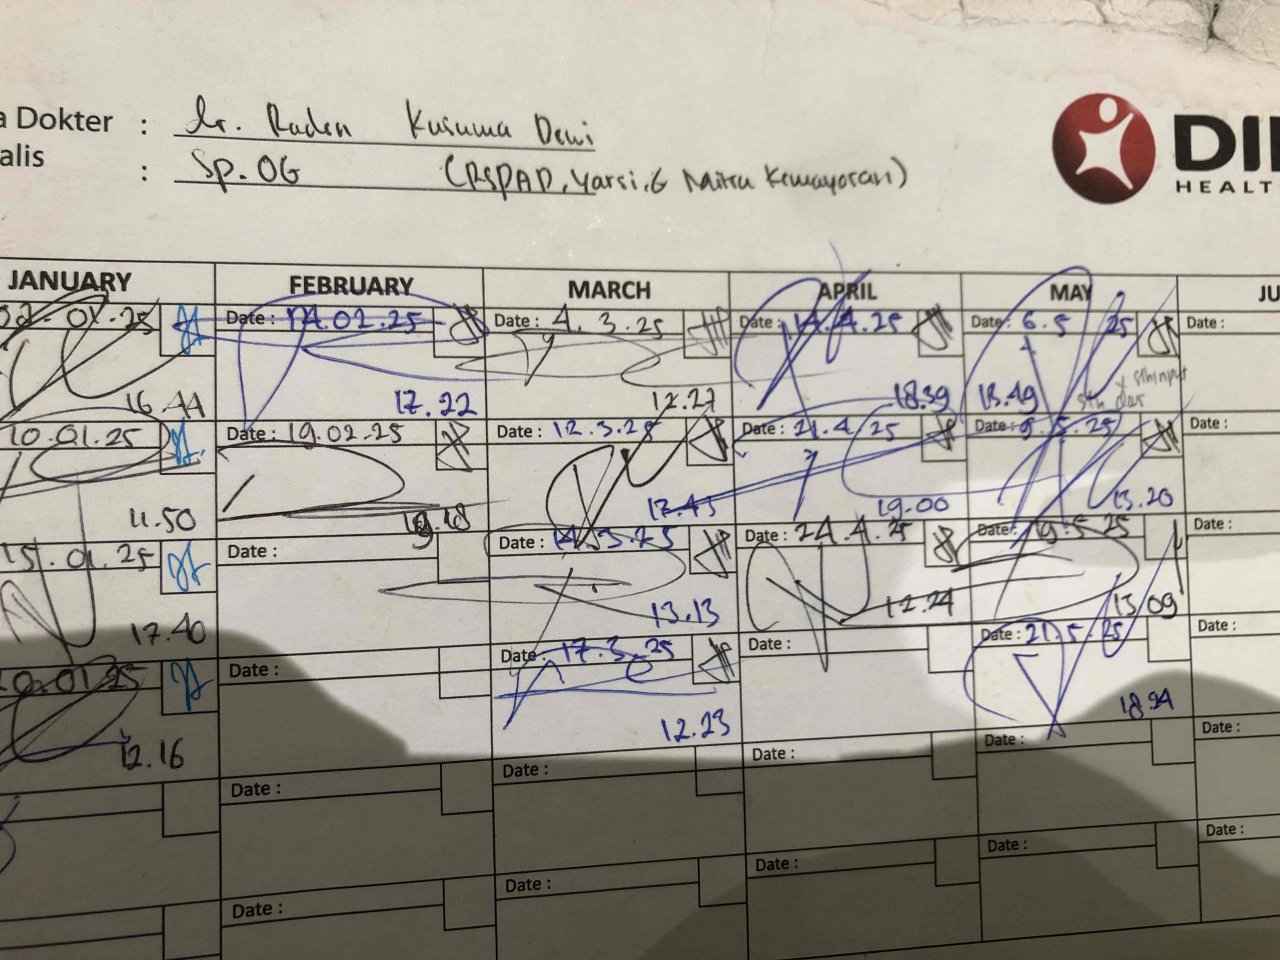 a Dokter : dr. Raden Kusuma Dewi
alis : Sp.OG (RSPAD, Yarsi, & Mitra Kemayoran)
DI
HEALT
JANUARY FEBRUARY MARCH APRIL MAY JU
02.01.25 Date : 14.02.25 Date : 4.3.25 Date : 14.4.25 Date : 6.5 25 Date :
16.44 17.22 12.27 18.39 13.49
10.01.25 Date : 19.02.25 Date : 12.3.25 Date : 21.4.25 Date : 9.5.25 Date :
11.50 17.43 19.00 13.20
15.01.25 Date : Date : 14.3.25 Date : 24.4.25 Date : 19.5.25 Date :
17.40 13.13 12.24 13.09
20.01.25 Date : Date : 17.3.25 Date : Date : 21.5.25 Date :
12.16 12.23 18.24
Date : Date : Date : Date : Date :
Date : Date : Date : Date : Date :